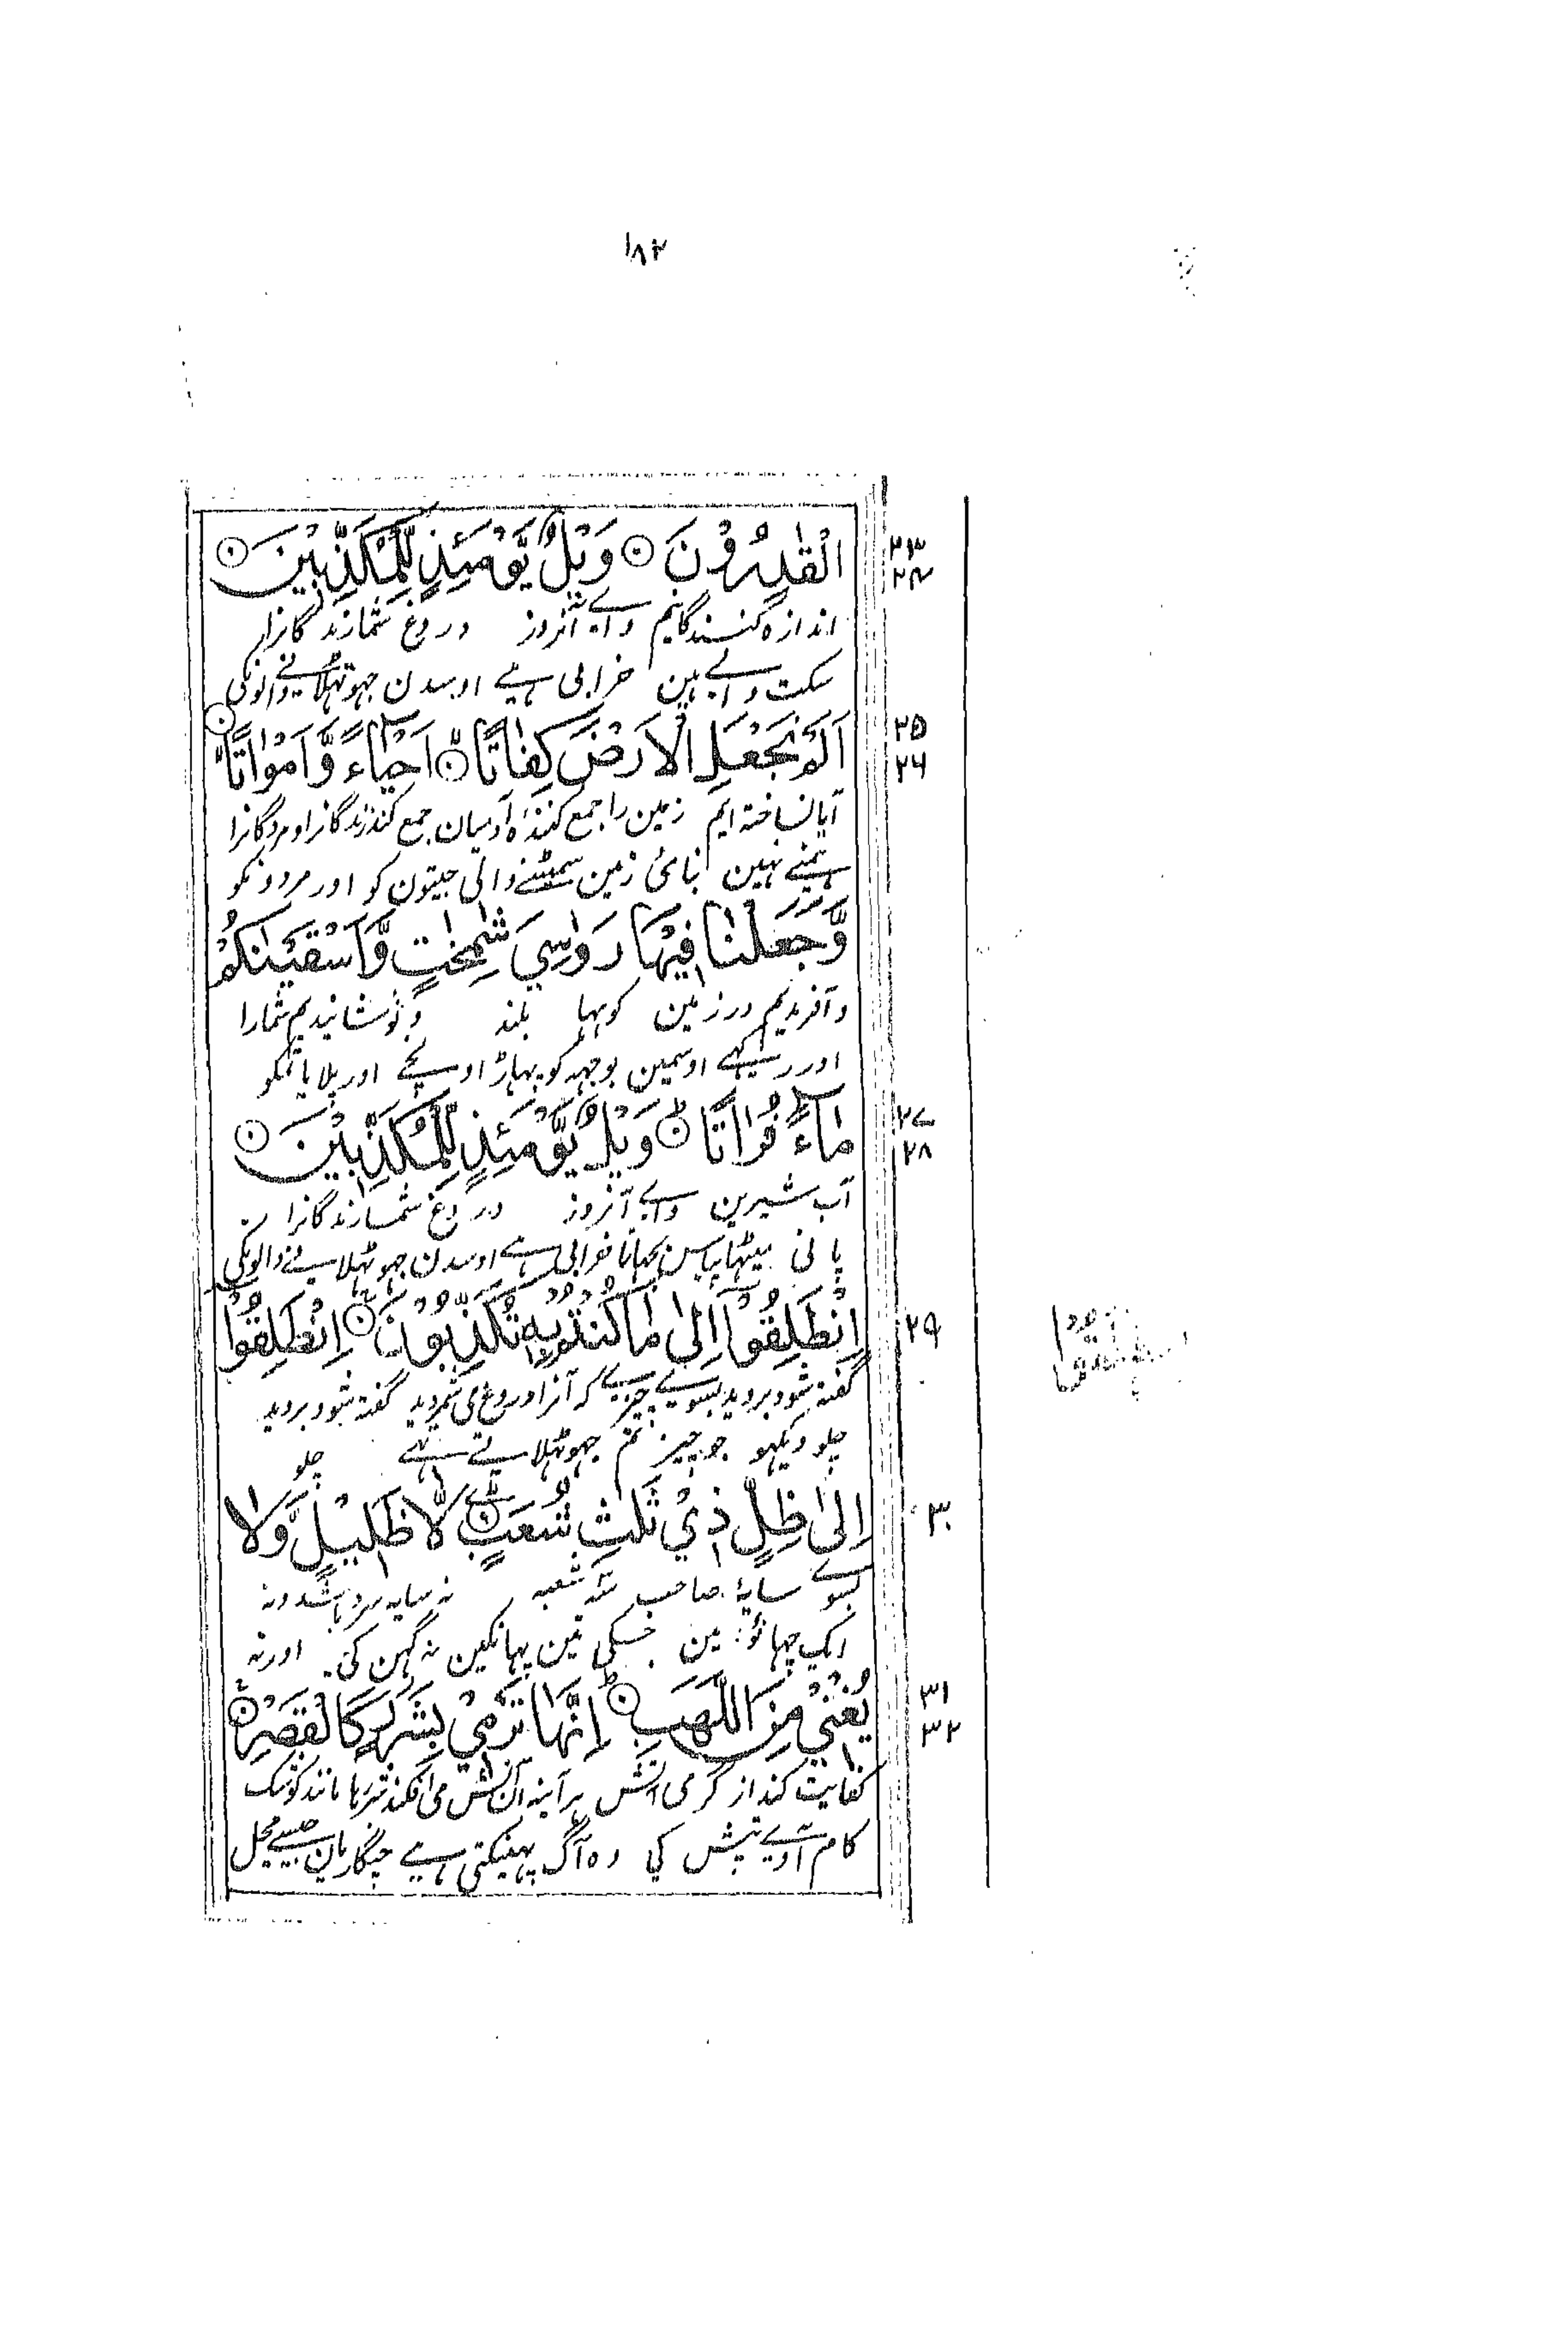 ۱۸۲
۲۳
۲۴
الْقٰدِرُوْنَ ۝ وَيْلٌ يَّوْمَئِذٍ لِّلْمُكَذِّبِيْنَ ۝
اندازه کنندگانیم واے آنروز دروغ شمارندگانرا
سکت والے ہین خرابی ہے اوسدن جہوٹہلانے والونکی
۲۵
۲۶
اَلَمْ نَجْعَلِ الْاَرْضَ كِفَاتًا ۝ اَحْيَاءً وَّاَمْوَاتًا ۝
آیا نساخته ایم زمین را جمع کنندهٔ آدمیان جمع کند زندگانرا و مردگانرا
ہمنے نہین بنائی زمین سمیٹنے والی جیتون کو اور مردونکو
وَّجَعَلْنَا فِيْهَا رَوَاسِيَ شٰمِخٰتٍ وَّاَسْقَيْنٰكُمْ
و آفریدیم در زمین کوہہا بلند و نوشانیدیم شمارا
اور رکہے اوسمین بوجہہ کو پہاڑ اونچے اور پلایا تمکو
۲۷
۲۸
مَاءً فُرَاتًا ۝ وَيْلٌ يَّوْمَئِذٍ لِّلْمُكَذِّبِيْنَ ۝
آب شیرین واے آنروز دروغ شمارندگانرا
پانی میٹہا پیاس بجہاتا خرابی ہے اوسدن جہوٹہلانے والونکی
۲۹
اِنْطَلِقُوْا اِلٰى مَا كُنْتُمْ بِهٖ تُكَذِّبُوْنَ ۝ اِنْطَلِقُوْا
گفته شود بروید بسوے چیزیے که آنرا دروغ می شمردید گفته شود بروید
چلو دیکہو جو چیز تم جہوٹہلاتے تہے چلو
۳۰
اِلٰى ظِلٍّ ذِيْ ثَلٰثِ شُعَبٍ ۝ لَّا ظَلِيْلٍ وَّلَا
بسوے سایهٔ صاحب سه شعبه نه سایه سرد باشد و نه
ایک چہانؤ مین جسکی تین پہانکین نہ گہن کی اور نہ
۳۱
۳۲
يُغْنِيْ مِنَ اللَّهَبِ ۝ اِنَّهَا تَرْمِيْ بِشَرَرٍ كَالْقَصْرِ ۝
کفایت کند از گرمی آتش ہر آینه آن آتش می افکند شررہا مانند کوشک
کام آوے تپش کی وہ آگ پہینکتی ہے چنگاریان جیسے محل